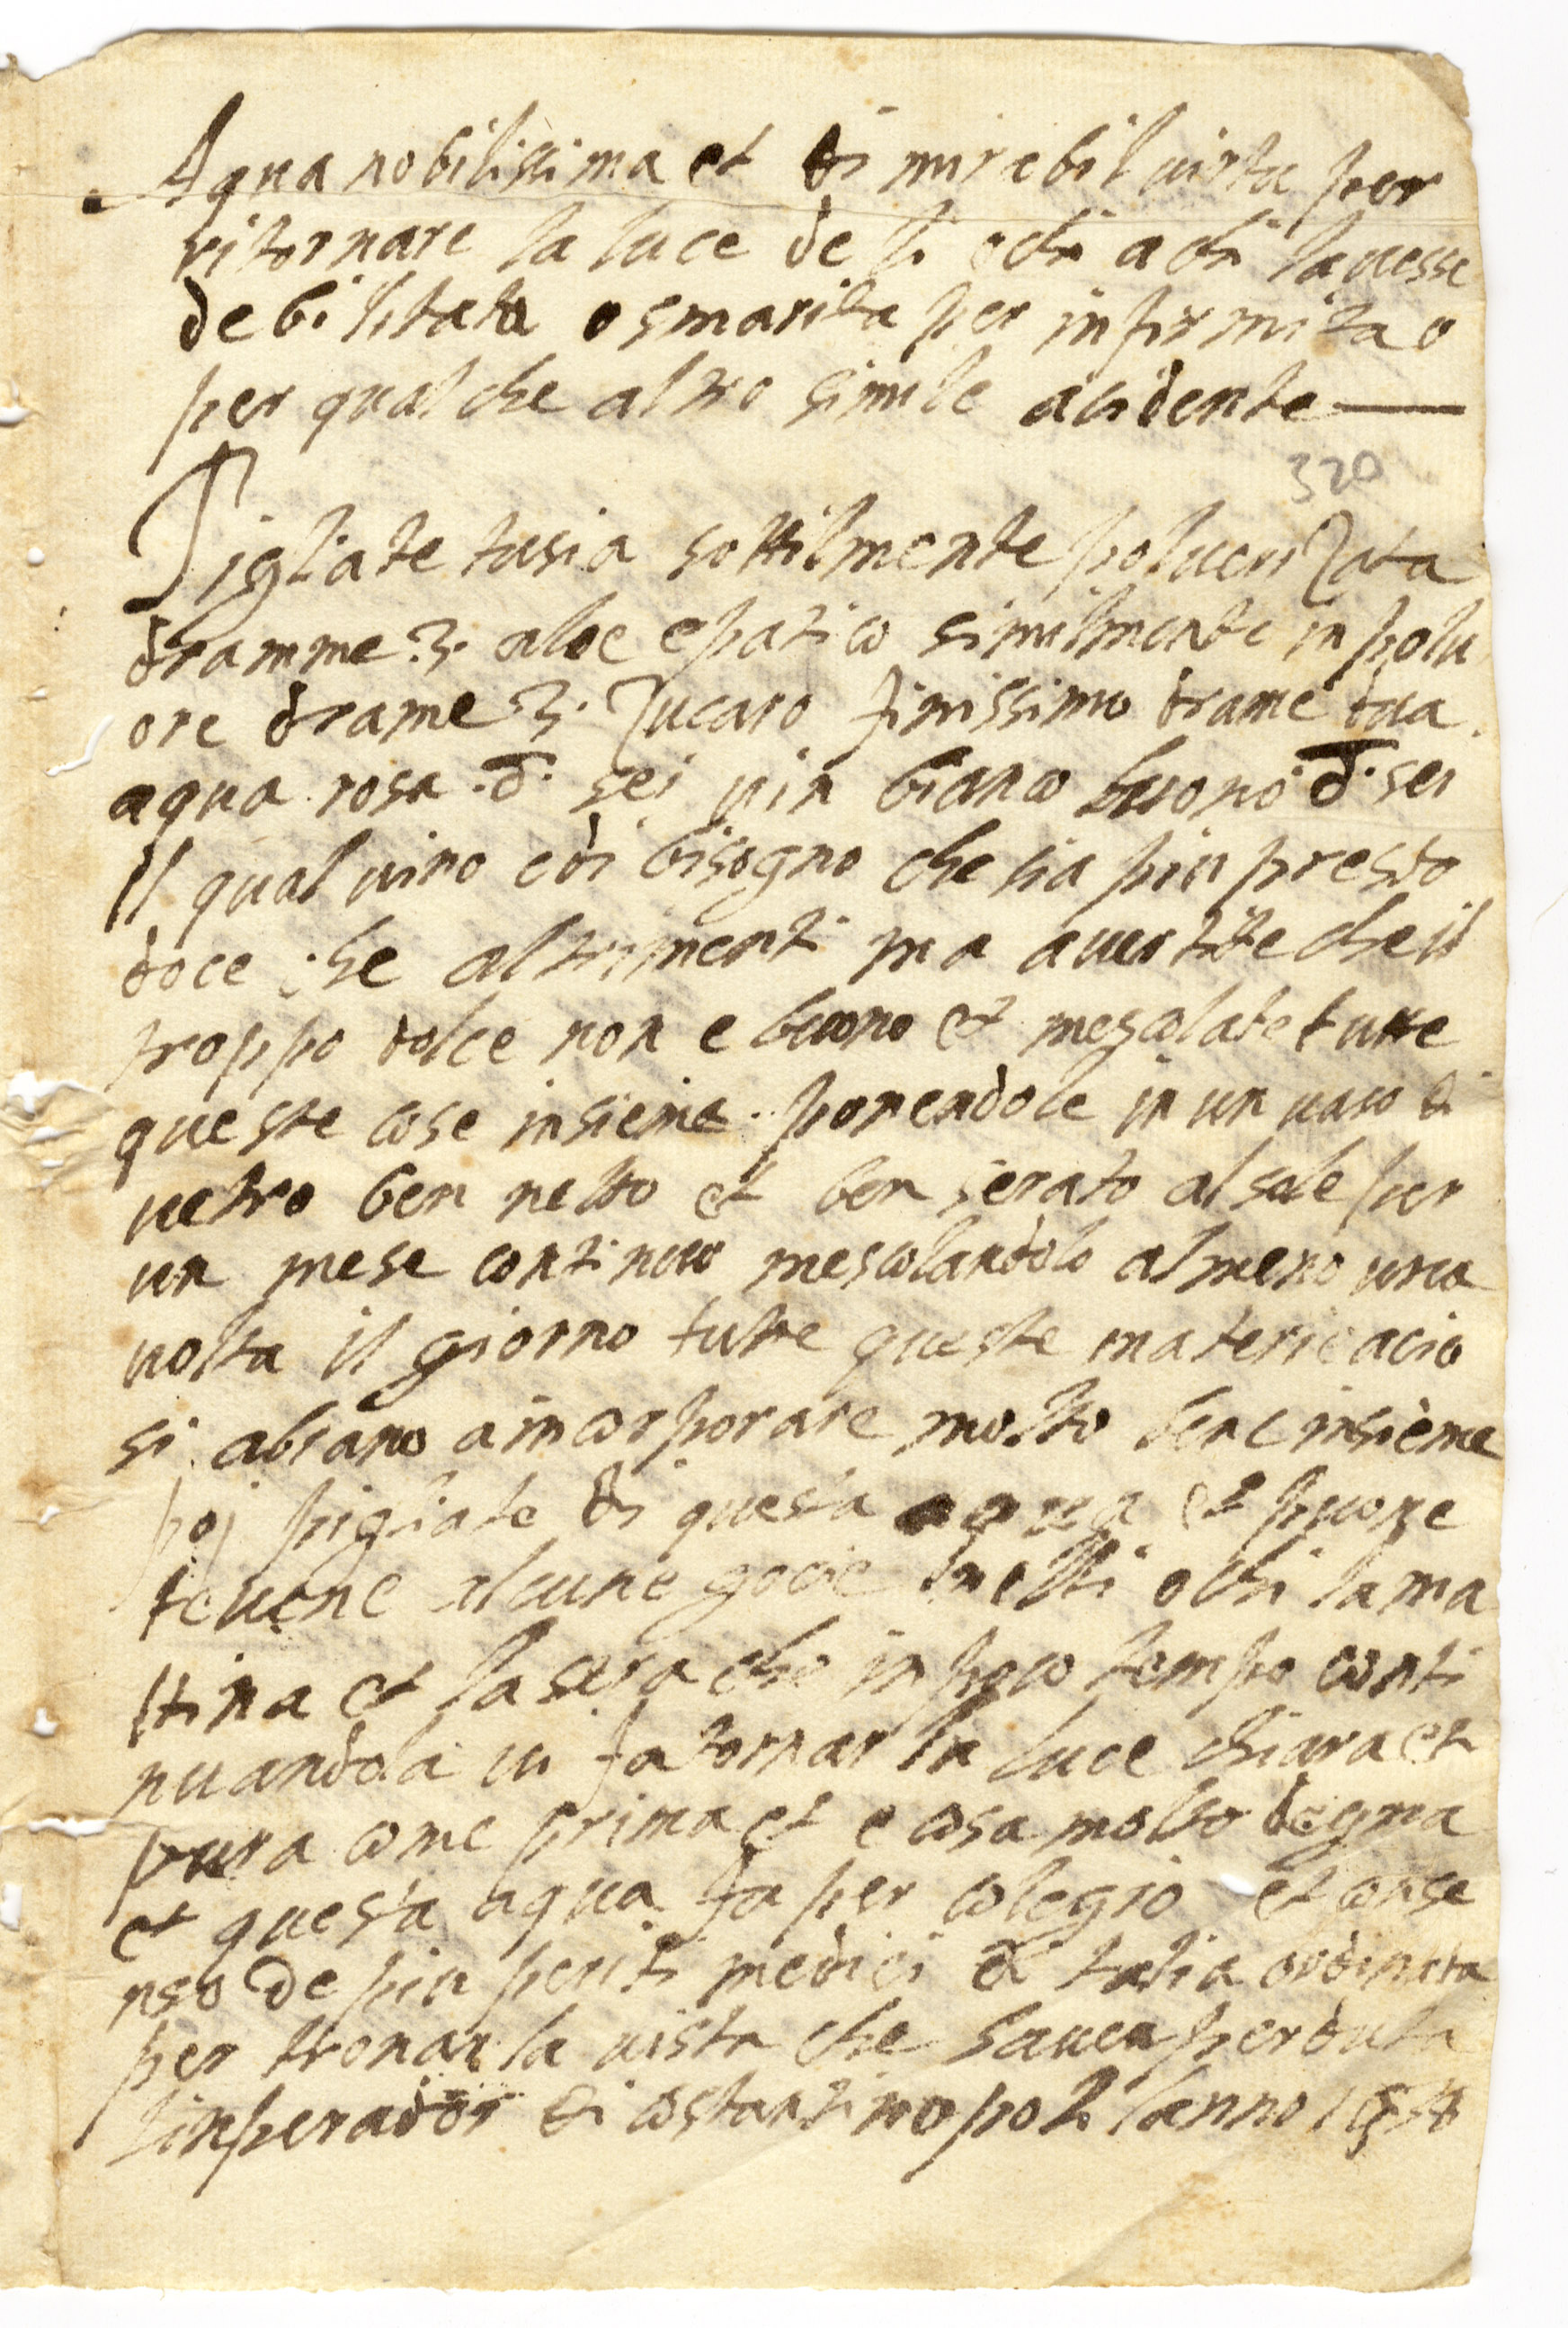 Aqua nobilissima et di mirabil uirtu per
ritornare la luce de li ochi a chi lauesse
debilitata o smarita per infirmita o
per qual che altro simile acidente
320
Pigliate tusia sottilmente poluerizata
dramme 3. aloe epatico similmente in polu
ere drame 3. Zucaro finissimo drame dua.
aqua rosa .d. sei uin bianco buono d. sei
Il qual uino e di bisogno che sia piu presto
doce che altrimenti ma auertite che il
troppo dolce non e buono et mescolate tutte
queste cose insieme ponendole in un uaso di
uetro ben netto et ben serato al sole per
un mese continuo mescolandolo almeno una
uolta il giorno tutte queste materie acio
si abiano a incorporare molto bene insieme
poj pigliate di questa aqua et puone
teuene alcune gocie ne li ochi la ma
ttina et la sera che in poco tempo conti
nuandola ui fa tornar la luce chiara et
pura come prima et e cosa molto degna
et questa aqua fu per colegio et conse
nso de piu periti medici di italia ordinata
per tronar la uista che haueua perduta
linperador di costantinopoli lanno